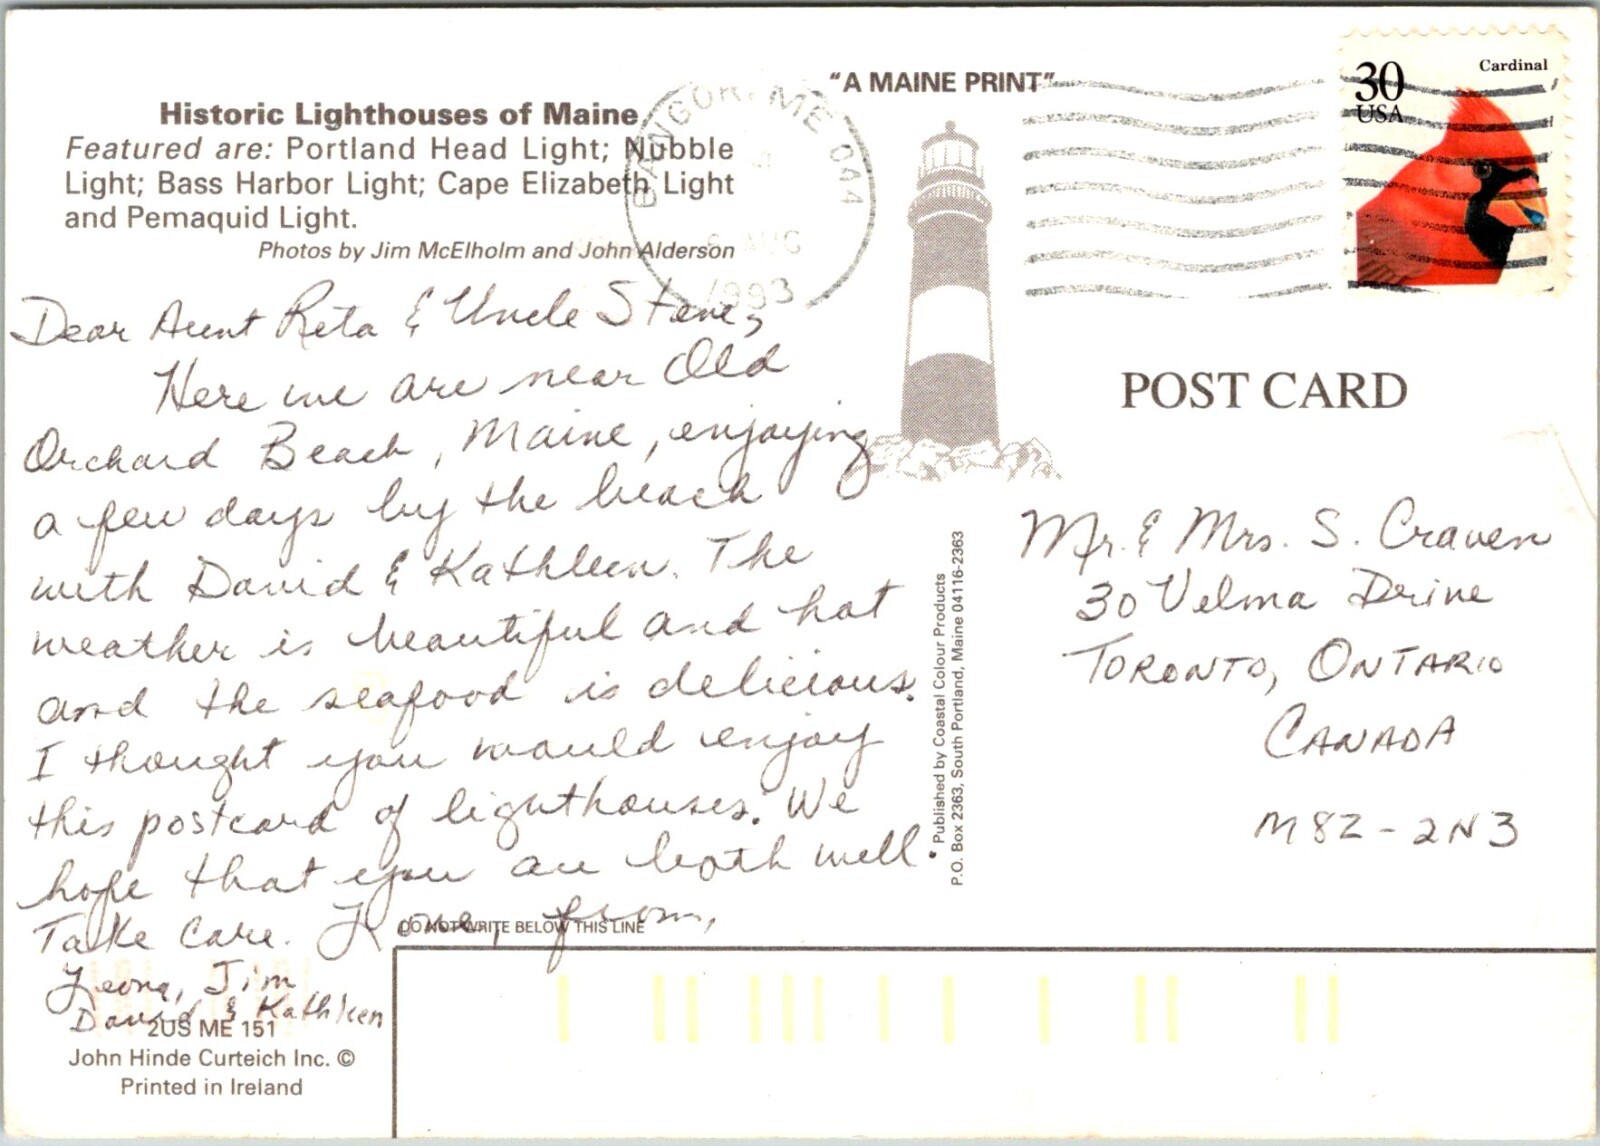 "A MAINE PRINT"
Historic Lighthouses of Maine
Featured are: Portland Head Light; Nubble
Light; Bass Harbor Light; Cape Elizabeth Light
and Pemaquid Light.
Photos by Jim McElholm and John Alderson
BANGOR, ME 044
AUG
1993
30
USA
Cardinal
Dear Aunt Reta & Uncle Steve,
Here we are near Old
Orchard Beach, Maine, enjoying
a few days by the beach
with David & Kathleen. The
weather is beautiful and hot
and the seafood is delicious.
I thought you would enjoy
this postcard of lighthouses. We
hope that you are both well.
Take Care. Love, from,
Leona, Jim
David & Kathleen
POST CARD
Mr. & Mrs. S. Craven
30 Velma Drive
TORONTO, ONTARIO
CANADA
M8Z-2N3
Published by Coastal Colour Products
P.O. Box 2363, South Portland, Maine 04116-2363
DO NOT WRITE BELOW THIS LINE
2US ME 151
John Hinde Curteich Inc. ©
Printed in Ireland